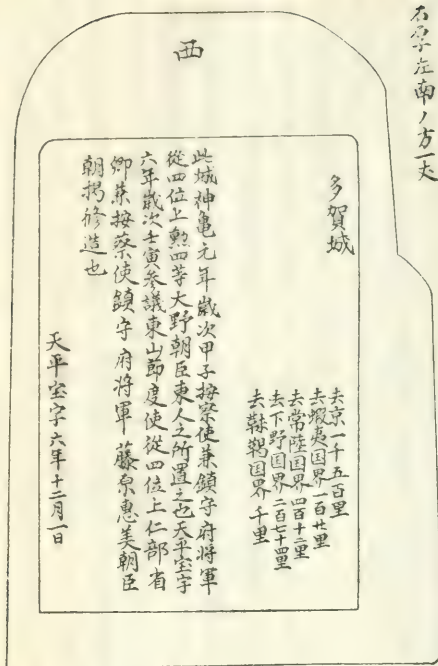 石厚サ左南ノ方一丈
西
多賀城
去京一千五百里
去蝦夷国界一百廿里
去常陸国界四百十二里
去下野国界二百七十四里
去靺鞨国界千里
此城神亀元年歳次甲子按察使兼鎮守府将軍
従四位上勲四等大野朝臣東人之所置之也天平宝字
六年歳次壬寅参議東山節度使従四位上仁部省
卿兼按察使鎮守府将軍藤原恵美朝臣
朝掲修造也
天平宝字六年十二月一日